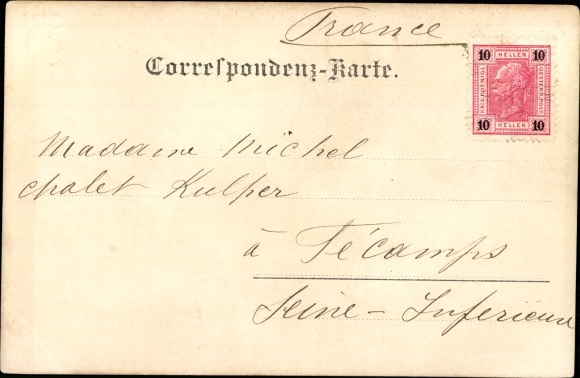 France
Correspondenz-Karte.
10 HELLER 10
KAIS. KOENIGL.
OESTERR. POST
10 HELLER 10
Madame Michel
chalet Kulper
à Fécamps
Seine-Inferieure